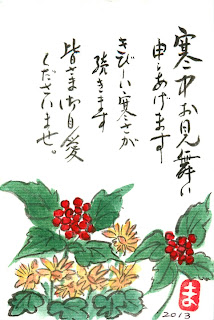 寒中お見舞い
申しあげます
きびしい寒さが
続きます
皆さまご自愛
くださいませ。
2013
ま